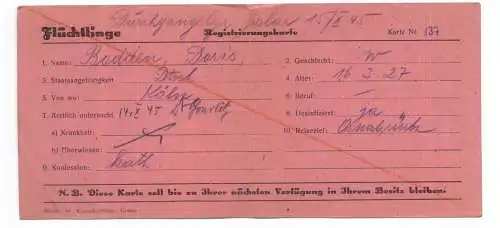 Durchgangslag. Goslar 15/X 45
Flüchtlinge Registrierungskarte Karte Nr 137
1. Name: Budden, Doris, 2. Geschlecht: W
3. Staatsangehörigkeit Dtsch 4. Alter: 16.3.27
5. Von wo: Köln 6. Beruf: –
7. Ärztlich untersucht 14/X 45 8. Desinfiziert: ja
a) Krankheit: 10. Reiseziel: Osnabrück
b) Überwiesen:
9. Konfession: kath.
N. B. Diese Karte soll bis zu Ihrer nächsten Verfügung in Ihrem Besitz bleiben.